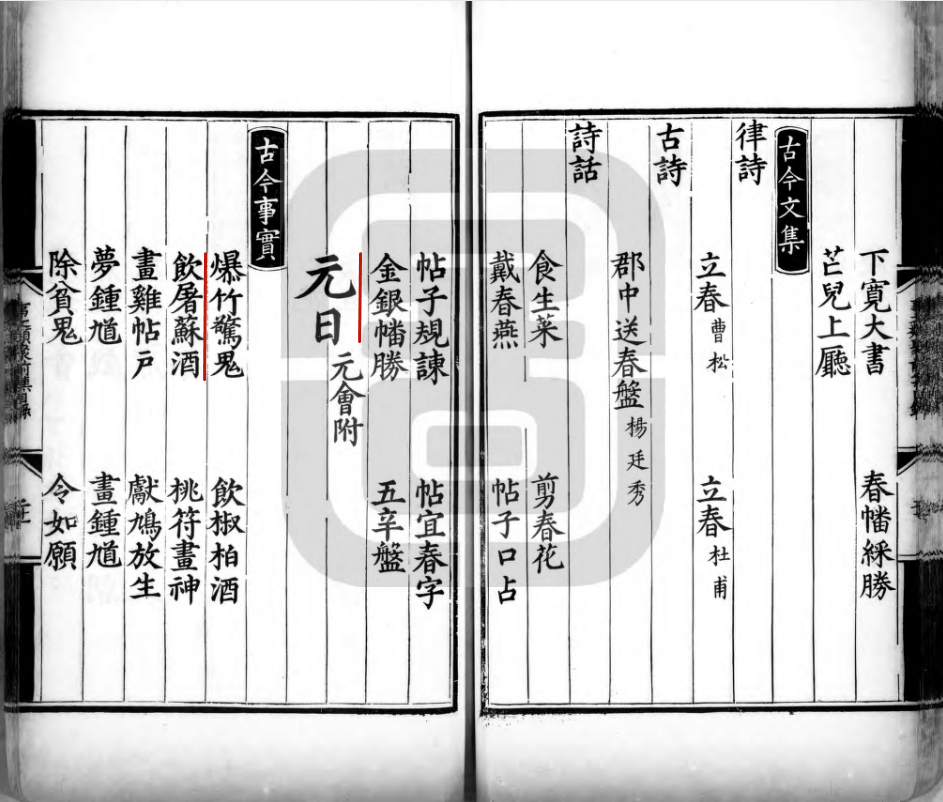 下寬大書 春幡綵勝
芒兒上廳
古今文集
律詩
立春 曹松 立春 杜甫
古詩
郡中送春盤 楊廷秀
詩話
食生菜 剪春花
戴春燕 帖子口占
帖子規諫 帖宜春字
金銀幡勝 五辛盤
元日 元會附
古今事實
爆竹驚鬼 飲椒柏酒
飲屠蘇酒 桃符畫神
畫雞帖戶 獻鳩放生
夢鍾馗 畫鍾馗
除貧鬼 令如願